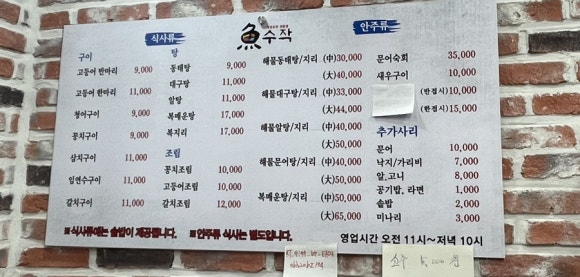 魚수작
식사류
구이
고등어 반마리 9,000
고등어 한마리 11,000
청어구이 9,000
꽁치구이 9,000
삼치구이 11,000
임연수구이 11,000
갈치구이 11,000
탕
동태탕 9,000
대구탕 11,000
알탕 11,000
복매운탕 17,000
복지리 17,000
조림
꽁치조림 10,000
고등어조림 10,000
갈치조림 12,000
※식사류에는 솥밥이 제공됩니다.
안주류
해물동태탕/지리 (中)30,000
(大)40,000
해물대구탕/지리 (中)33,000
(大)44,000
해물알탕/지리 (中)40,000
(大)50,000
해물문어탕/지리 (中)40,000
(大)50,000
복매운탕/지리 (中)50,000
(大)65,000
※안주류 식사는 별도입니다.
문어숙회 35,000
새우구이 10,000
(반접시)10,000
(한접시)15,000
추가사리
문어 10,000
낙지/가리비 7,000
알,고니 8,000
공기밥, 라면 1,000
솥밥 2,000
미나리 3,000
영업시간 오전 11시~저녁 10시